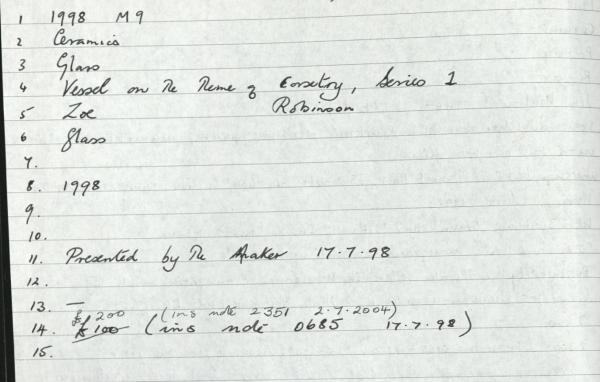 1 1998 M9
2 Ceramics
3 Glass
4 Vessel on The Theme of Corsetry, Series 1
5 Zoe Robinson
6 Glass
7.
8. 1998
9.
10.
11. Presented by The Maker 17.7.98
12.
13. —
£200 (ins note 2351 2.7.2004)
14. £100 (ins note 0685 17.7.98)
15.